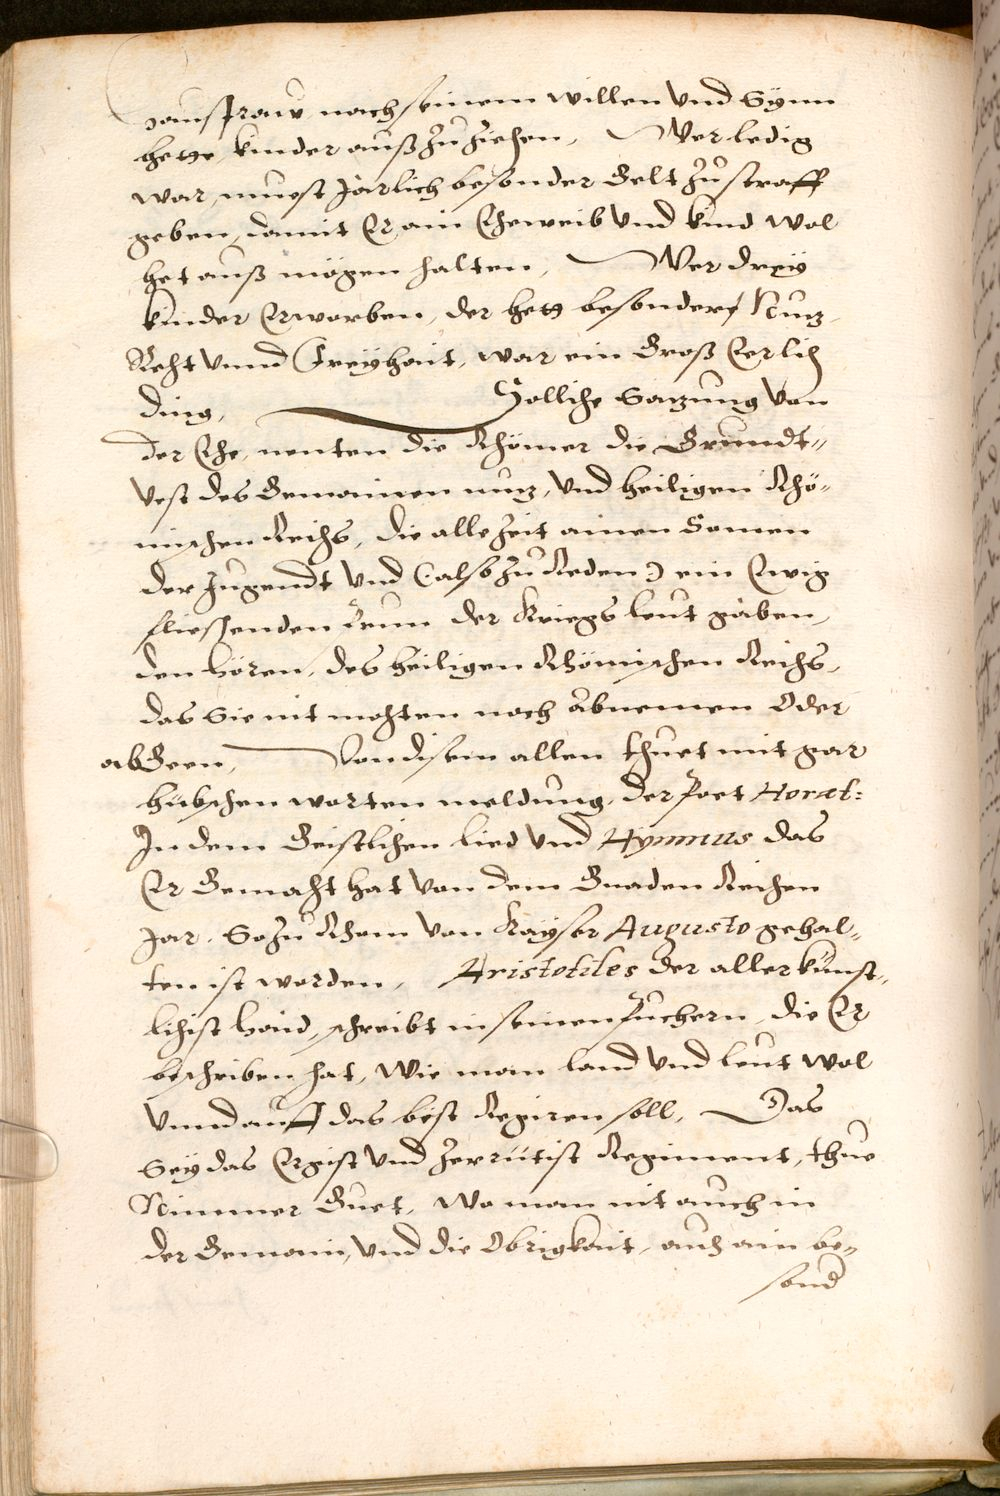 hausfraw nach seinem willen vnd Synn
hette kinder auß zu ziehen, Wer ledig
war, muest Järlich besonder Gelt zu straff
geben, damit Er ain Eheweib vnd kind wol
het auß mögen halten, Wer drey
kinder Erworben, der hett besonder Nutz,
Recht vnnd Freyhait, war ein Groß Eerlich
ding, Solliche Satzung von
der Ehe, nenten die Rhömer die Grundt-
vest des Gemainen nutz, vnd heiligen Rhö-
mischen Reichs, die alle Zeit ainen Somen
der Jugendt vnd (: also zu Reden :) ein Ewig
fliessenden brun der Kriegs leut gaben,
den hören, des heiligen Rhömischen Reichs,
das Sie nit mochten noch abnemen oder
abGeen, Von disem allen thuet mit gar
hübschen worten meldung, der Poet Horat:
In dem Geistlichen lied vnd Hymnus das
Er Gemacht hat von dem Gnaden Reichen
Jar. So zu Rhom von Kayser Augusto gehal-
ten ist worden, Aristotiles der aller künst-
lichist haid, schreibt in seinen Puchern, die Er
beschriben hat, Wie man land vnd leut wol
vnnd auff das best Regiren soll, Das
Sey das Ergist vnd Zerrütist Regiment, thue
Nimmer Guet, wo man nit auch in
der Gemain, vnd die Obrigkait, auch ain be-
sond